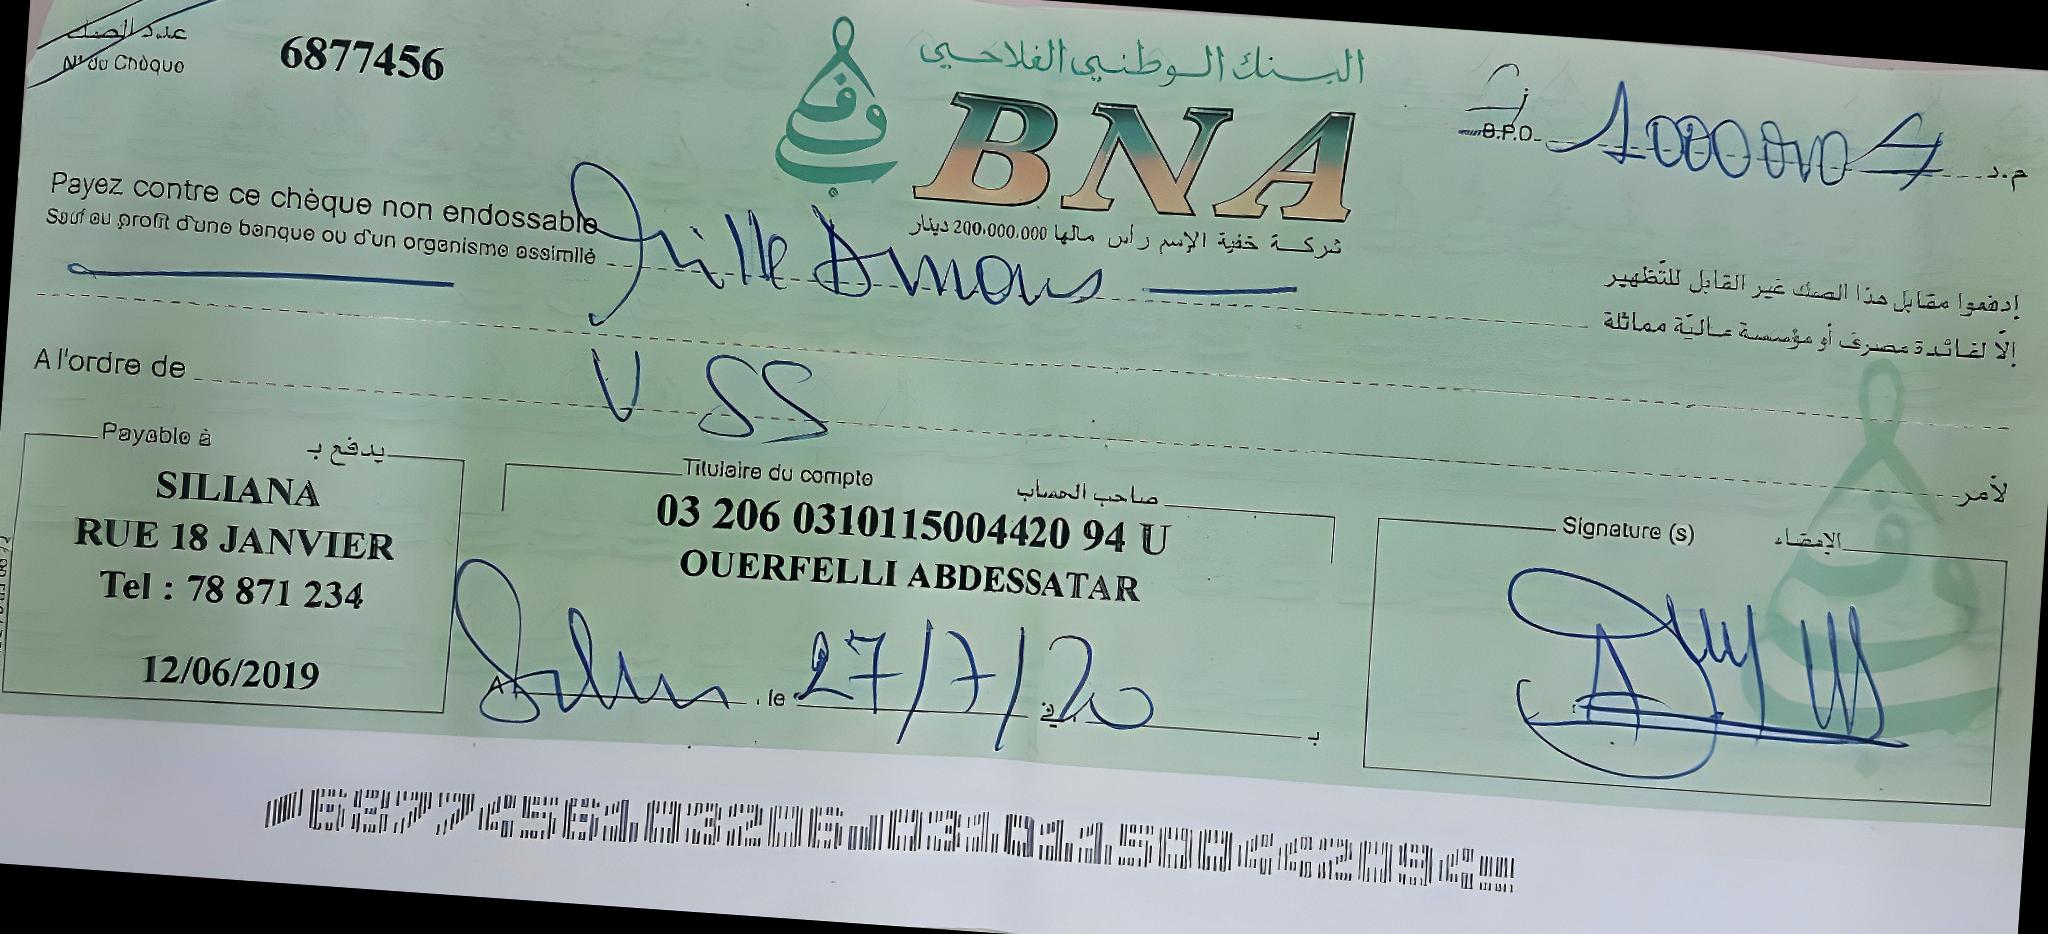 عدد الصك
N° du Chèque
6877456
البنك الوطني الفلاحي
BNA
شركة خفية الإسم رأس مالها 200.000.000 دينار
B.P.D.
م.د
Payez contre ce chèque non endossable
Sauf au profit d'une banque ou d'un organisme assimilé
إدفعوا مقابل هذا الصك غير القابل للتّظهير
إلّا لفائدة مصرف أو مؤسسة مالية مماثلة
A l'ordre de
V SS
لأمر
Payable à
يدفع بـ
SILIANA
RUE 18 JANVIER
Tel : 78 871 234
12/06/2019
Titulaire du compte
صاحب الحساب
03 206 0310115004420 94 U
OUERFELLI ABDESSATAR
A
, le 27/7/20
في
بـ
Signature (s)
الإمضاء
6877456103206 031011500442094